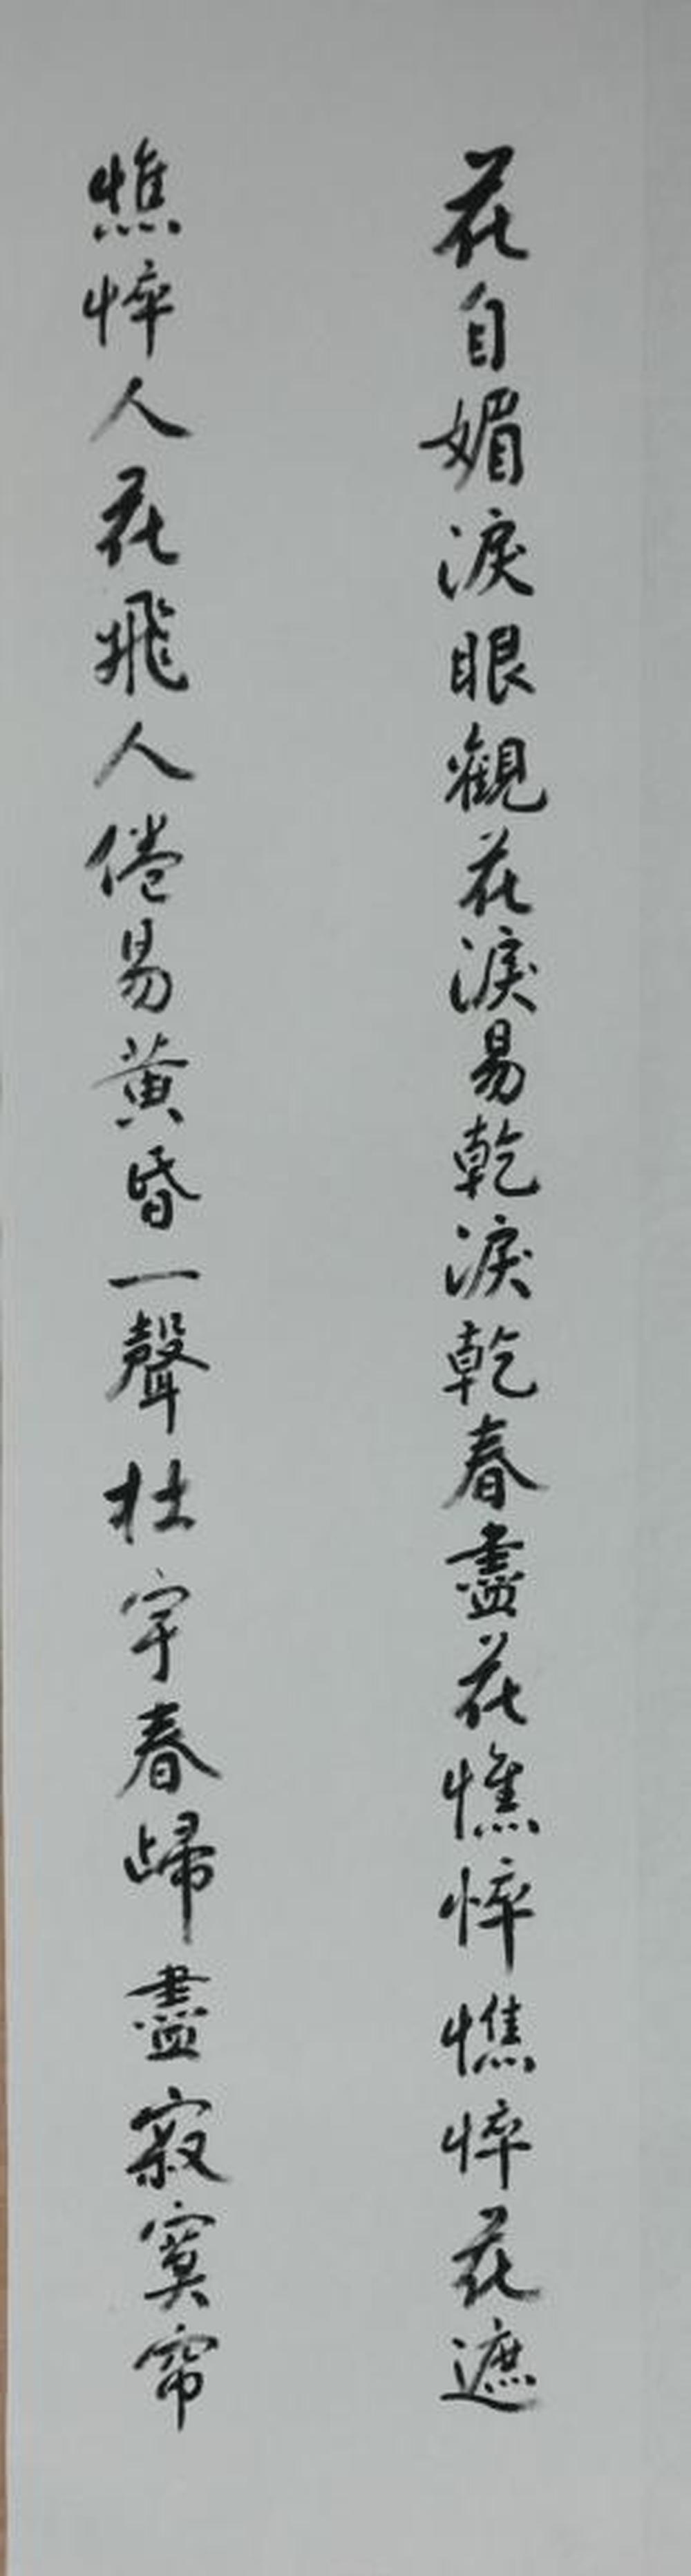 花自媚淚眼觀花淚易乾淚乾春盡花憔悴憔悴花遮
憔悴人花飛人倦易黃昏一聲杜宇春歸盡寂寞帘